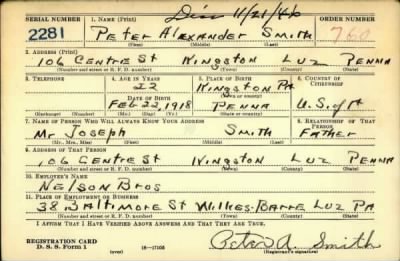 Dis 11/21/46
SERIAL NUMBER 1. NAME (Print) ORDER NUMBER
2281 Peter Alexander Smith 760
(First) (Middle) (Last)
2. ADDRESS (Print)
106 Centre St Kingston Luz Penna
(Number and street or R. F. D. number) (Town) (County) (State)
3. TELEPHONE 4. AGE IN YEARS 5. PLACE OF BIRTH 6. COUNTRY OF CITIZENSHIP
22 Kingston Pa
DATE OF BIRTH (Town or county)
Feb 22, 1918 Penna U.S. of A
(Exchange) (Number) (Mo.) (Day) (Yr.) (State or country)
7. NAME OF PERSON WHO WILL ALWAYS KNOW YOUR ADDRESS 8. RELATIONSHIP OF THAT PERSON
Mr Joseph Smith Father
(Mr., Mrs., Miss) (First) (Middle) (Last)
9. ADDRESS OF THAT PERSON
106 Centre St Kingston Luz Penna
(Number and street or R. F. D. number) (Town) (County) (State)
10. EMPLOYER'S NAME
Nelson Bros
11. PLACE OF EMPLOYMENT OR BUSINESS
38 Baltimore St Wilkes-Barre Luz Pa
(Number and street or R. F. D. number) (Town) (County) (State)
I AFFIRM THAT I HAVE VERIFIED ABOVE ANSWERS AND THAT THEY ARE TRUE.
REGISTRATION CARD
D. S. S. Form 1 (over) 16—17105 Peter A. Smith
(Registrant's signature)